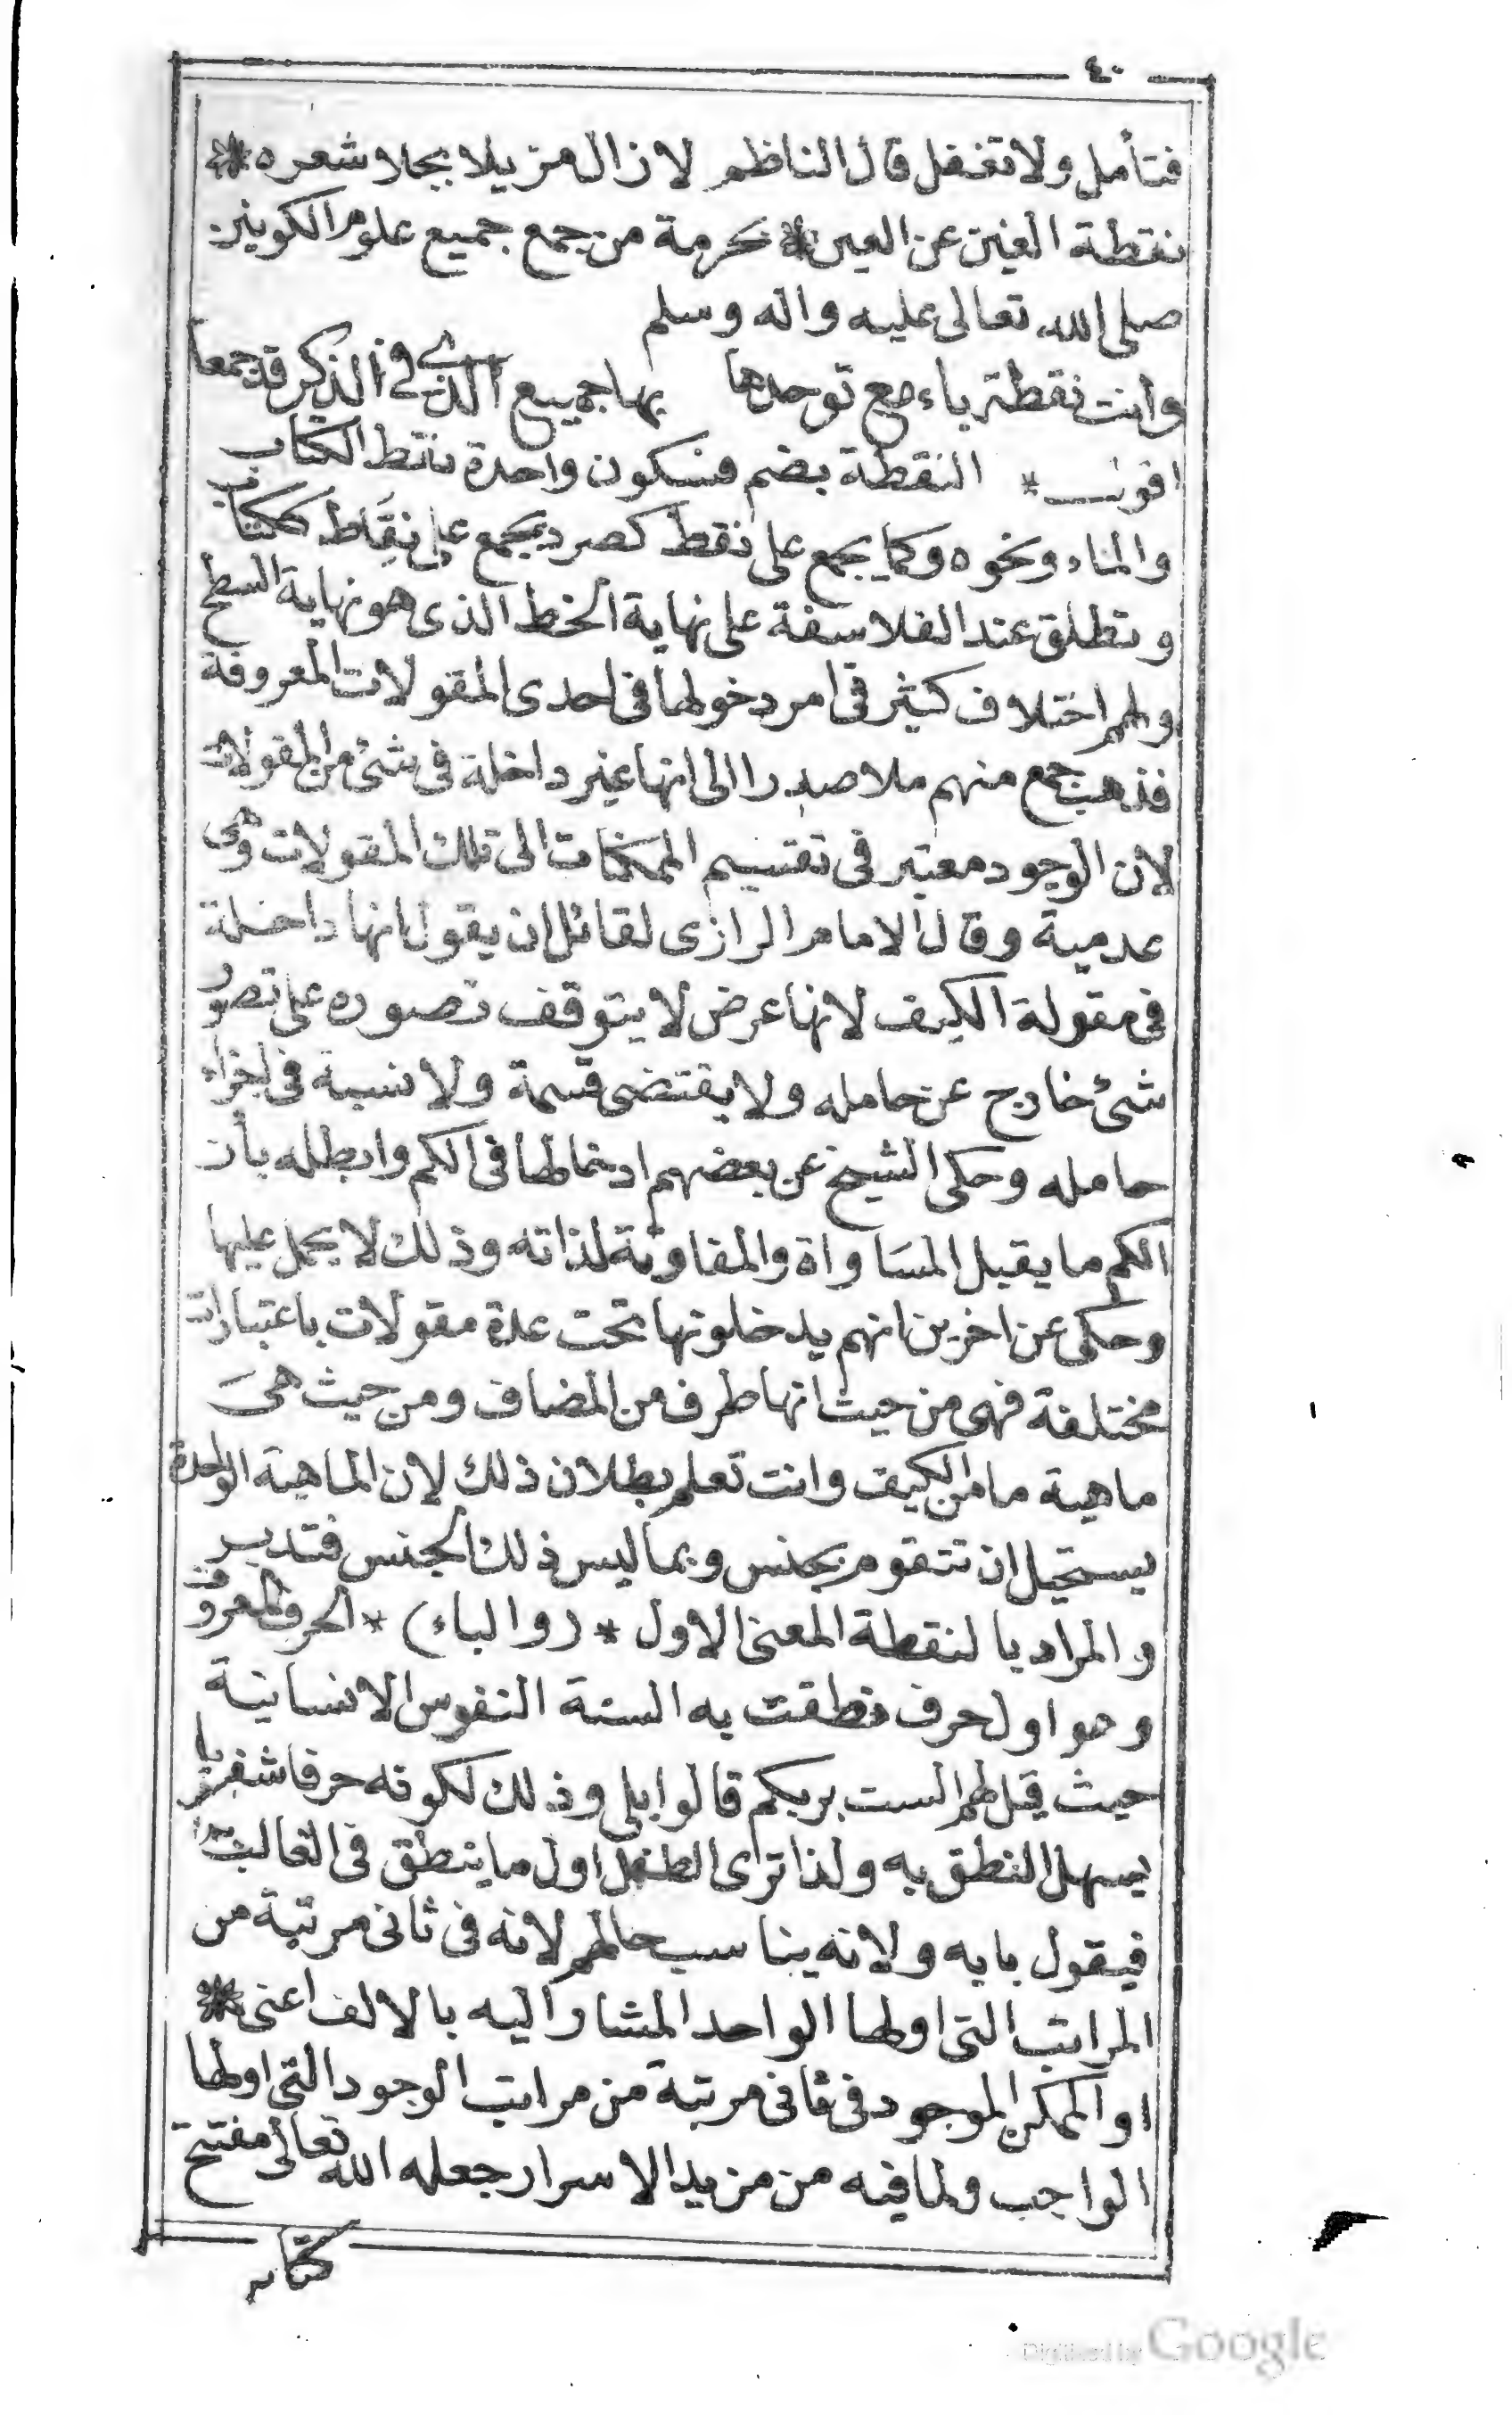 ٤٠
فتأمل ولا تغفل قال الناظم لا زال مزيلا بجلا شعره *
نقطة الغين عن العين * بحرمة من جمع جميع علوم الكونين
صلى الله تعالى عليه واله وسلم
وانت نقطة باء مع توحدها بها جميع الذي في الذكر قد جمعا
اقول * النقطة بضم فسكون واحدة نقط الكتاب
والماء ونحوه وكما يجمع على نقط كصرد يجمع على نِقَاط ككتاب
وتطلق عند الفلاسفة على نهاية الخط الذى هو نهاية السطح
ولهم اختلاف كثير فى امر دخولها فى احدى المقولات المعروفة
فذهب جمع منهم ملا صدرا الى انها غير داخلة فى شئ من المقولات
لان الوجود معتبر فى تقسيم الممكنات الى تلك المقولات وهى
عدمية وقال الامام الرازى لقائل ان يقول انها داخلة
فى مقولة الكيف لانها عرض لا يتوقف تصوره على تصور
شئ خارج عن حامله ولا يقتضى قسمة ولا نسبة فى اجزاء
حامله وحكى الشيخ عن بعضهم ادخالها فى الكم وابطله بان
الكم ما يقبل المسَاواة والمفاوتة لذاته وذلك لا يحمل عليها
وحكى عن اخرين انهم يدخلونها تحت عدة مقولات باعتبارات
مختلفة فهى من حيث انها طرف من المضاف ومن حيث هىَ
ماهية ما من الكيف وانت تعلم بطلان ذلك لان الماهية الواحدة
يستحيل ان تتقوم بجنس وبما ليس ذلك الجنس فتدبر
والمراد بالنقطة المعنى الاول * (والباء) * الحرف المعروف
وهو اول حرف نطقت به السنة النفوس الانسانية
حيث قيل لهم الست بربكم قالوا بلى وذلك لكونه حرفا شفويا
يسهل النطق به ولذا ترى الطفل اول ما ينطق فى الغالب
فيقول بابه ولانه يناسب حالهم لانه فى ثانى مرتبة من
المراتب التى اولها الواحد المشار اليه بالالف اعنى *
ا والممكن الموجود فى ثانى مرتبة من مراتب الوجود التى اولها
الواجب ولما فيه من مزيد الاسرار جعله الله تعالى مفتتح
كتابه
Digitized by Google